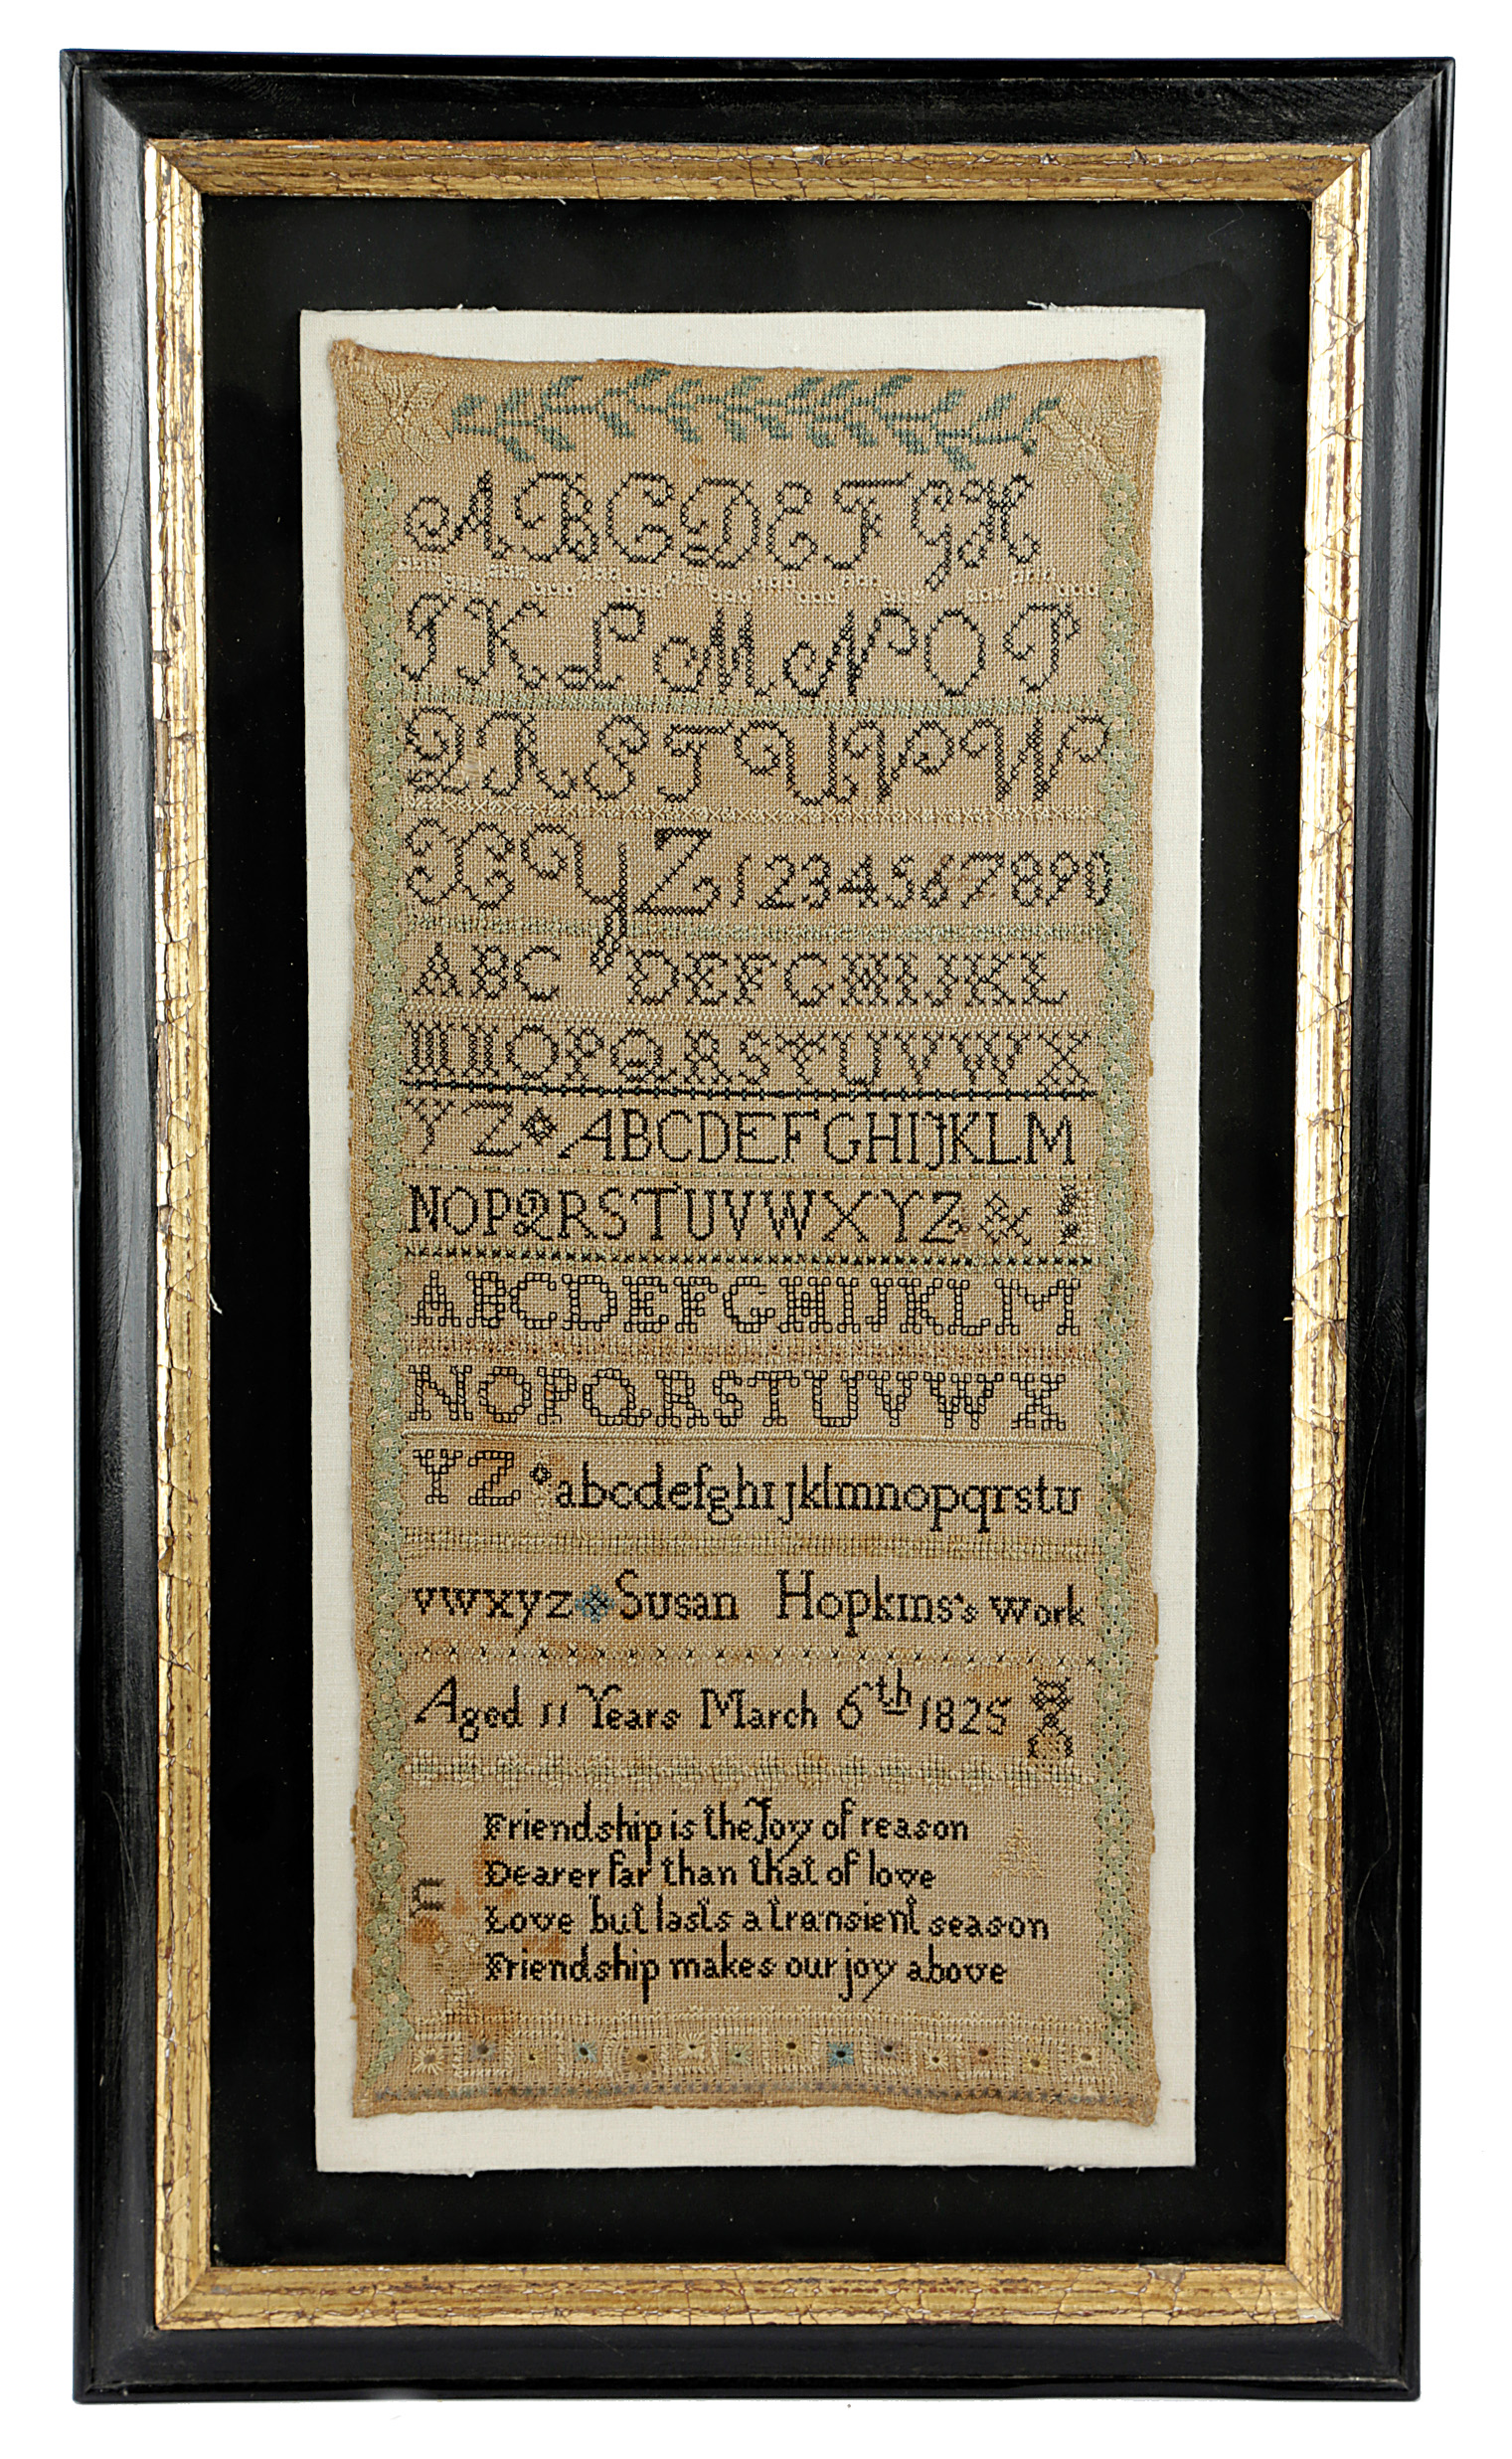 A B C D E F G H
I K L M N O P
Q R S T U V W
X Y Z 1 2 3 4 5 6 7 8 9 0
A B C D E F G H I J K L
M N O P Q R S T U V W X
Y Z A B C D E F G H I J K L M
N O P Q R S T U V W X Y Z
A B C D E F G H I J K L M
N O P Q R S T U V W X
Y Z a b c d e f g h i j k l m n o p q r s t u
v w x y z Susan Hopkins's work
Aged 11 Years March 6th 1825
Friendship is the Joy of reason
Dearer far than that of love
Love but lasts a transient season
Friendship makes our joy above